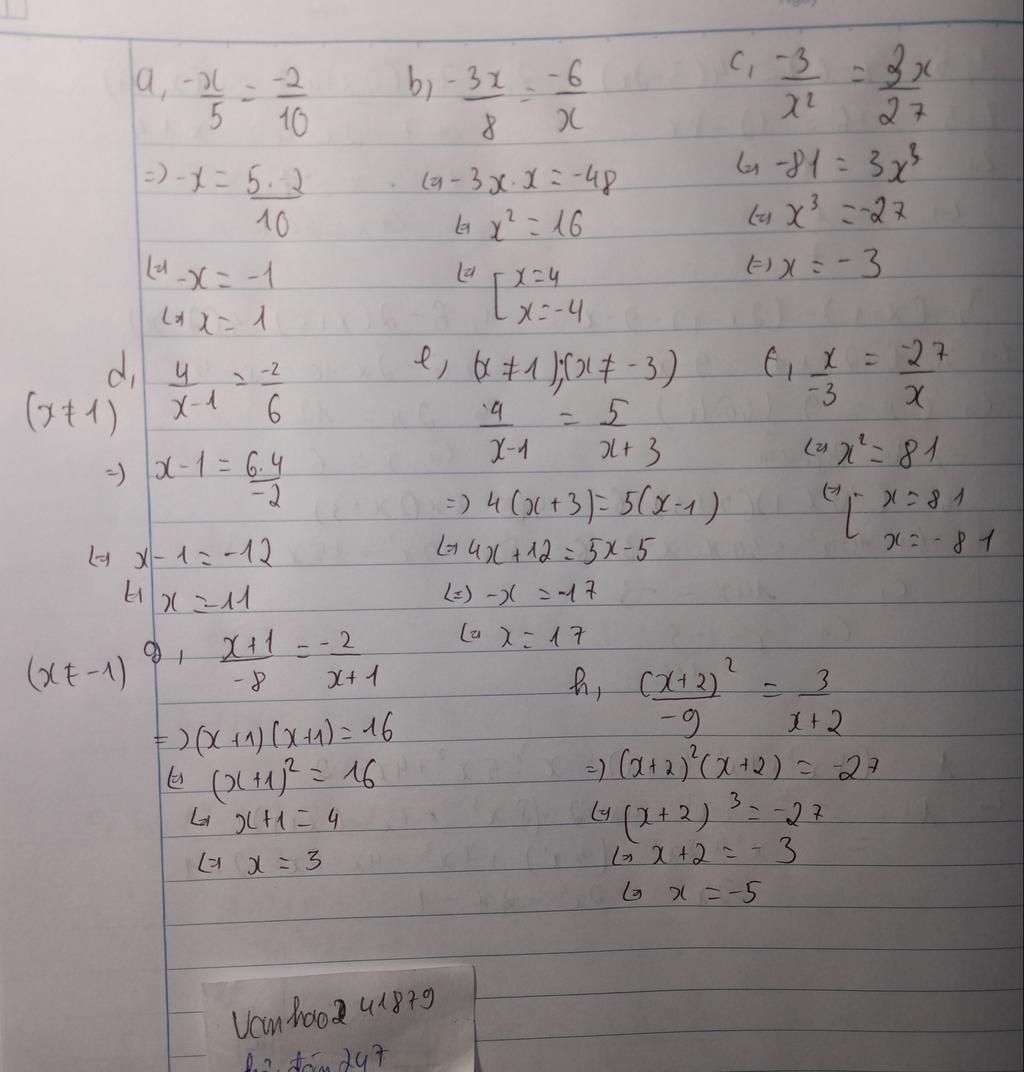 a, -x/5 = -2/10
=> -x = 5.2/10
<=> -x = -1
<=> x = 1
b, -3x/8 = -6/x
<=> -3x.x = -48
<=> x² = 16
<=> [ x = 4
x = -4
c, -3/x² = 3x/27
<=> -81 = 3x³
<=> x³ = -27
<=> x = -3
d, 4/x-1 = -2/6
(x ≠ 1)
=> x-1 = 6.4/-2
<=> x-1 = -12
<=> x = 11
e, (x ≠ 1);(x ≠ -3)
4/x-1 = 5/x+3
=> 4(x+3) = 5(x-1)
<=> 4x+12 = 5x-5
<=> -x = -17
<=> x = 17
f, x/-3 = -27/x
<=> x² = 81
<=> [ x = 81
x = -81
g, x+1/-8 = -2/x+1
(x ≠ -1)
=> (x+1)(x+1) = 16
<=> (x+1)² = 16
<=> x+1 = 4
<=> x = 3
h, (x+2)²/-9 = 3/x+2
=> (x+2)²(x+2) = -27
<=> (x+2)³ = -27
<=> x+2 = -3
<=> x = -5
Vanhao241879
247